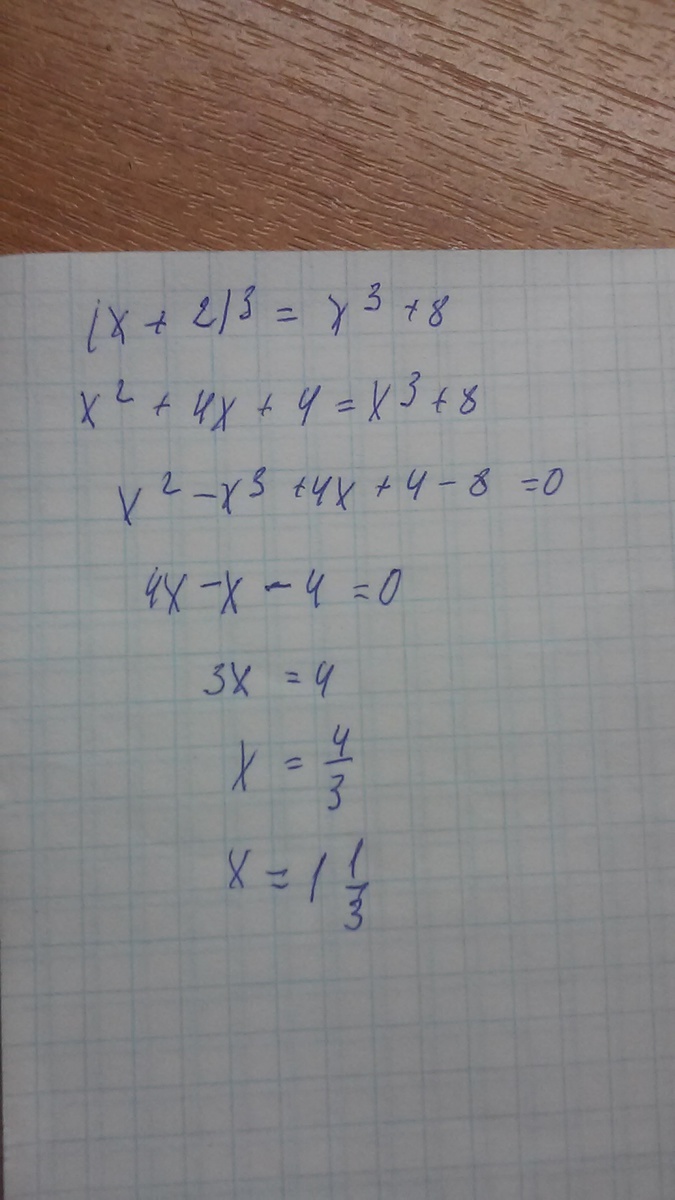 (x + 2)³ = x³ + 8
x² + 4x + 4 = x³ + 8
x² - x³ + 4x + 4 - 8 = 0
4x - x - 4 = 0
3x = 4
x = 4/3
x = 1 1/3